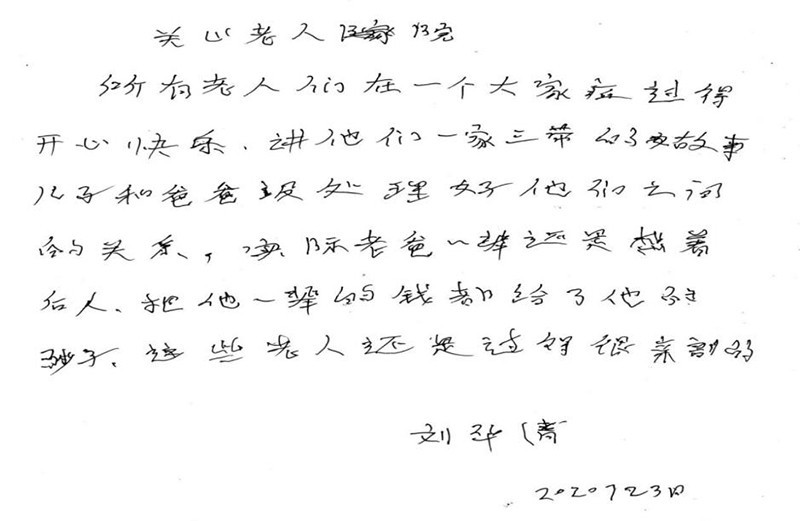 关心老人家院
所有老人们在一个大家庭过得
开心快乐.讲他们一家三带的故事
儿子和爸爸没处理好他们之间
的关系,实际老爸一辈还是想着
后人.把他一辈的钱都给了他
孙子.这些老人还是过得很亲割的
刘华清
2020723日